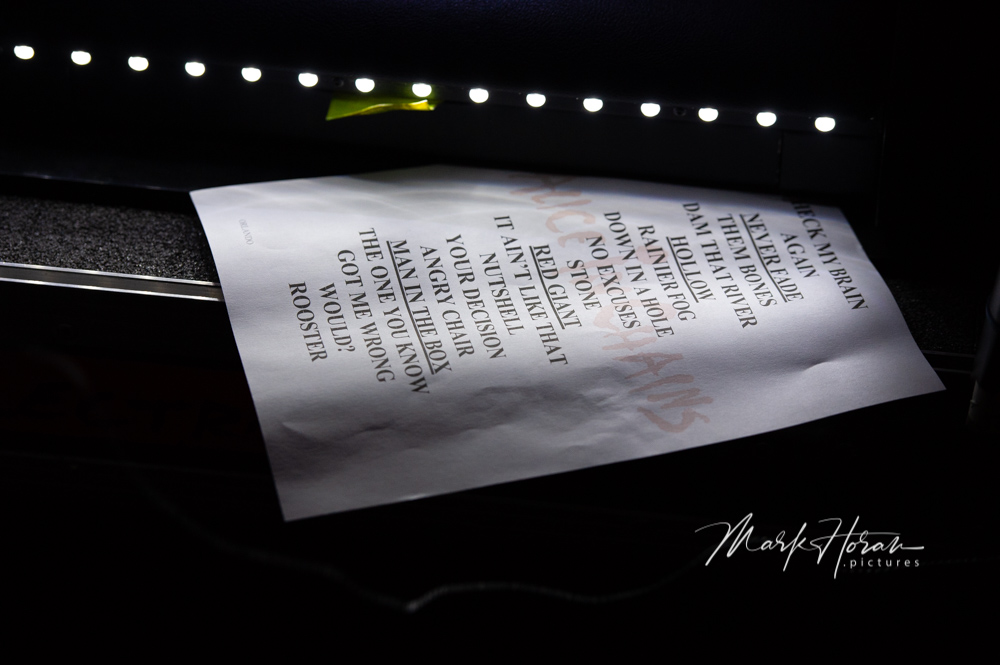 ALICE IN CHAINS
HECK MY BRAIN
AGAIN
NEVER FADE
THEM BONES
DAM THAT RIVER
HOLLOW
RAINIER FOG
DOWN IN A HOLE
NO EXCUSES
STONE
RED GIANT
IT AIN'T LIKE THAT
NUTSHELL
YOUR DECISION
ANGRY CHAIR
MAN IN THE BOX
THE ONE YOU KNOW
GOT ME WRONG
WOULD?
ROOSTER
ORLANDO
Mark Horan
.pictures